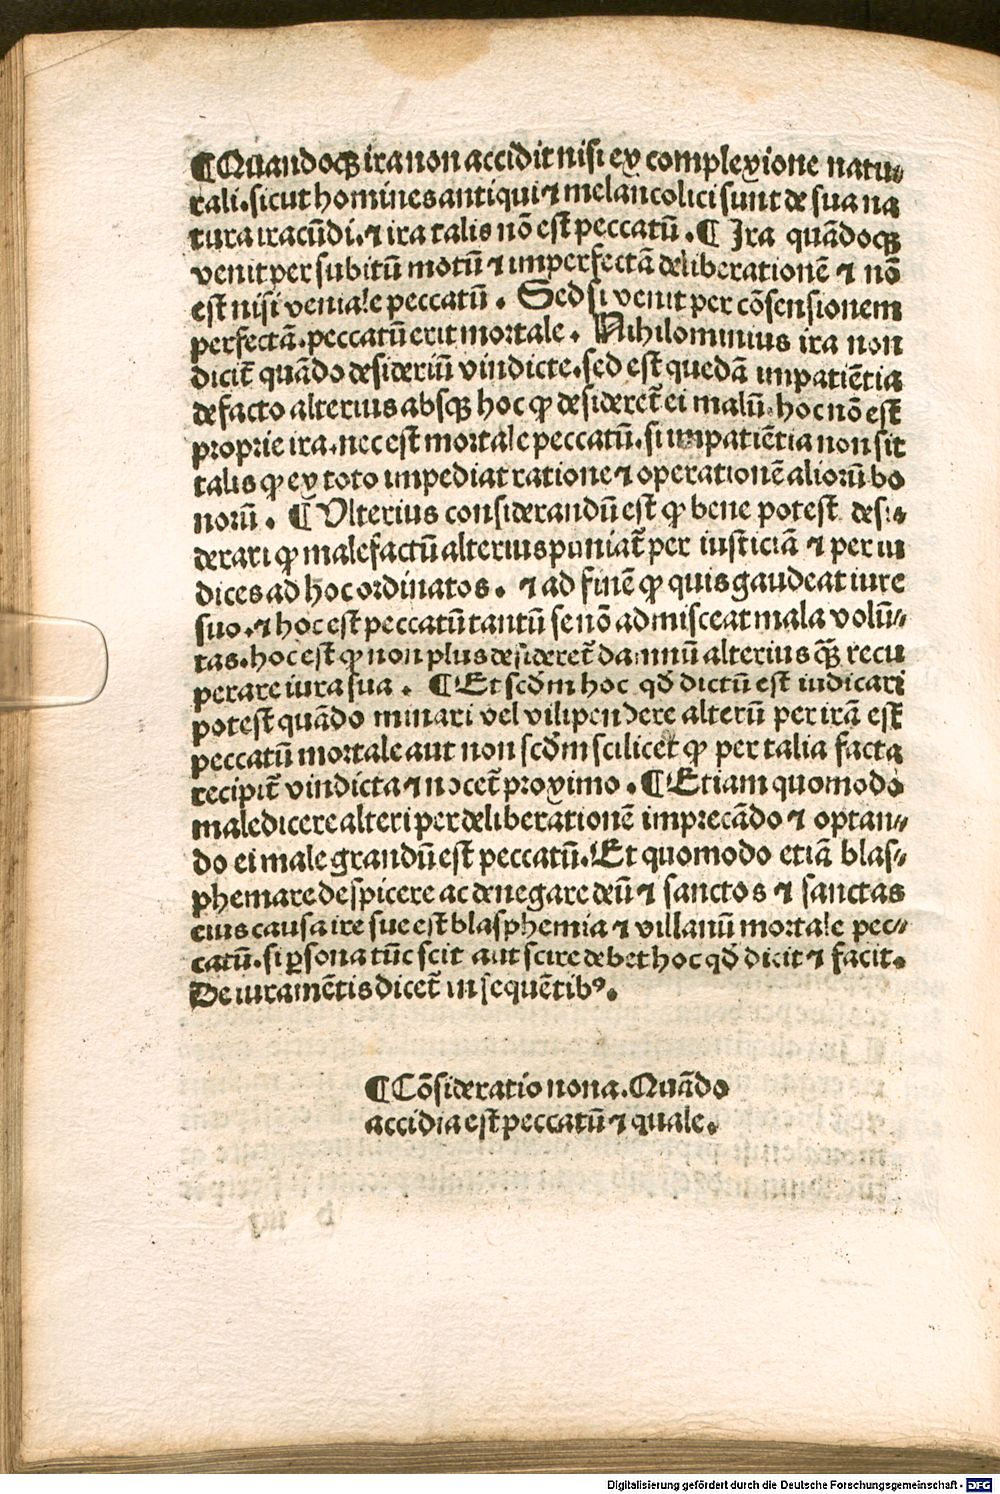 ¶Quandoqꝫ ira non accidit nisi ex complexione natu⸗
rali. sicut homines antiqui ⁊ melancolici sunt de sua na
tura iracūdi. ⁊ ira talis nō est peccatū. ¶ Ira quādoqꝫ
venit per subitū motū ⁊ imperfectā deliberationē ⁊ nō
est nisi veniale peccatū. Sed si venit per cōsensionem
perfectā. peccatū erit mortale. Nihilominius ira non
dicit᷑ quādo desideriū vindicte. sed est quedā impatiētia
de facto alterius absqꝫ hoc ꝙ desideret᷑ ei malū. hoc nō est
proprie ira. nec est mortale peccatū. si impatiētia non sit
talis ꝙ ex toto impediat ratione ⁊ operationē aliorū bo
norū. ¶ Ulterius considerandū est ꝙ bene potest desi⸗
derari ꝙ malefactū alterius puniat᷑ per iusticiā ⁊ per iu
dices ad hoc ordinatos. ⁊ ad finē ꝙ quis gaudeat iure
suo. ⁊ hoc est peccatū tantū se nō admisceat mala volū⸗
tas. hoc est ꝙ non plus desideret᷑ damnū alterius ꝙ̄ recu
perare iura sua. ¶ Et scd̄m hoc qd̄ dictū est iudicari
potest quādo minari vel vilipendere alterū per irā est
peccatū mortale aut non scd̄m scilicet ꝙ per talia facta
recipit᷑ vindicta ⁊ nocet᷑ proximo. ¶ Etiam quomodo
maledicere alteri per deliberationē imprecādo ⁊ optan⸗
do ei male grandū est peccatū. Et quomodo etiā blas⸗
phemare despicere ac denegare deū ⁊ sanctos ⁊ sanctas
eius causa ire sue est blasphemia ⁊ villanū mortale pec⸗
catū. si ꝑsona tūc scit aut scire debet hoc qd̄ dicit ⁊ facit.
De iuramētis dicet᷑ in sequētibꝰ.
¶ Cōsideratio nona. Quādo
accidia est peccatū ⁊ quale.
Digitalisierung gefördert durch die Deutsche Forschungsgemeinschaft - DFG